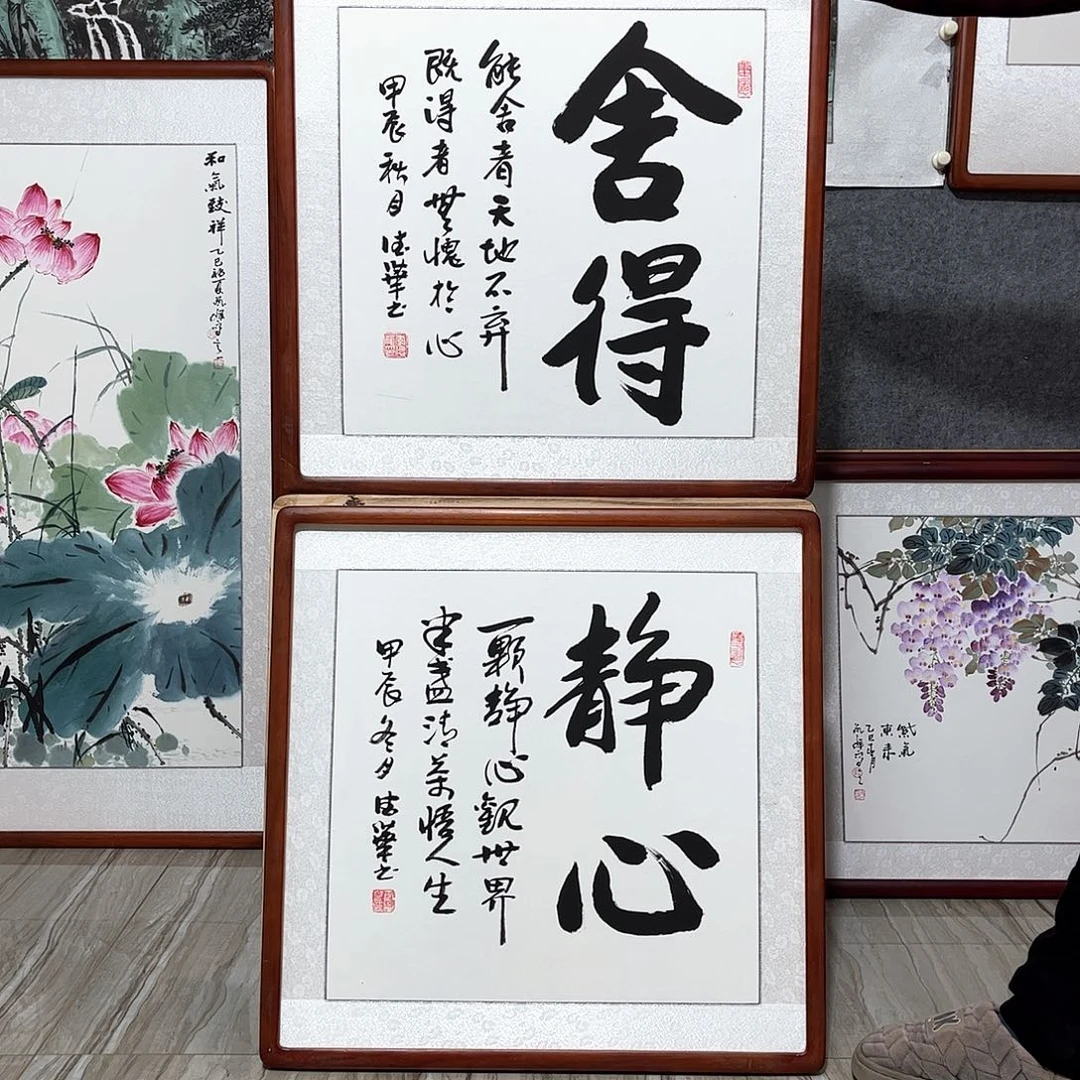 舍得
能舍者天地不弃
既得者無愧於心
甲辰秋月德華书
静心
一颗静心觀世界
半盏清茶悟人生
甲辰冬月德華书
和氣致祥
乙巳
紫氣
東来
乙巳年